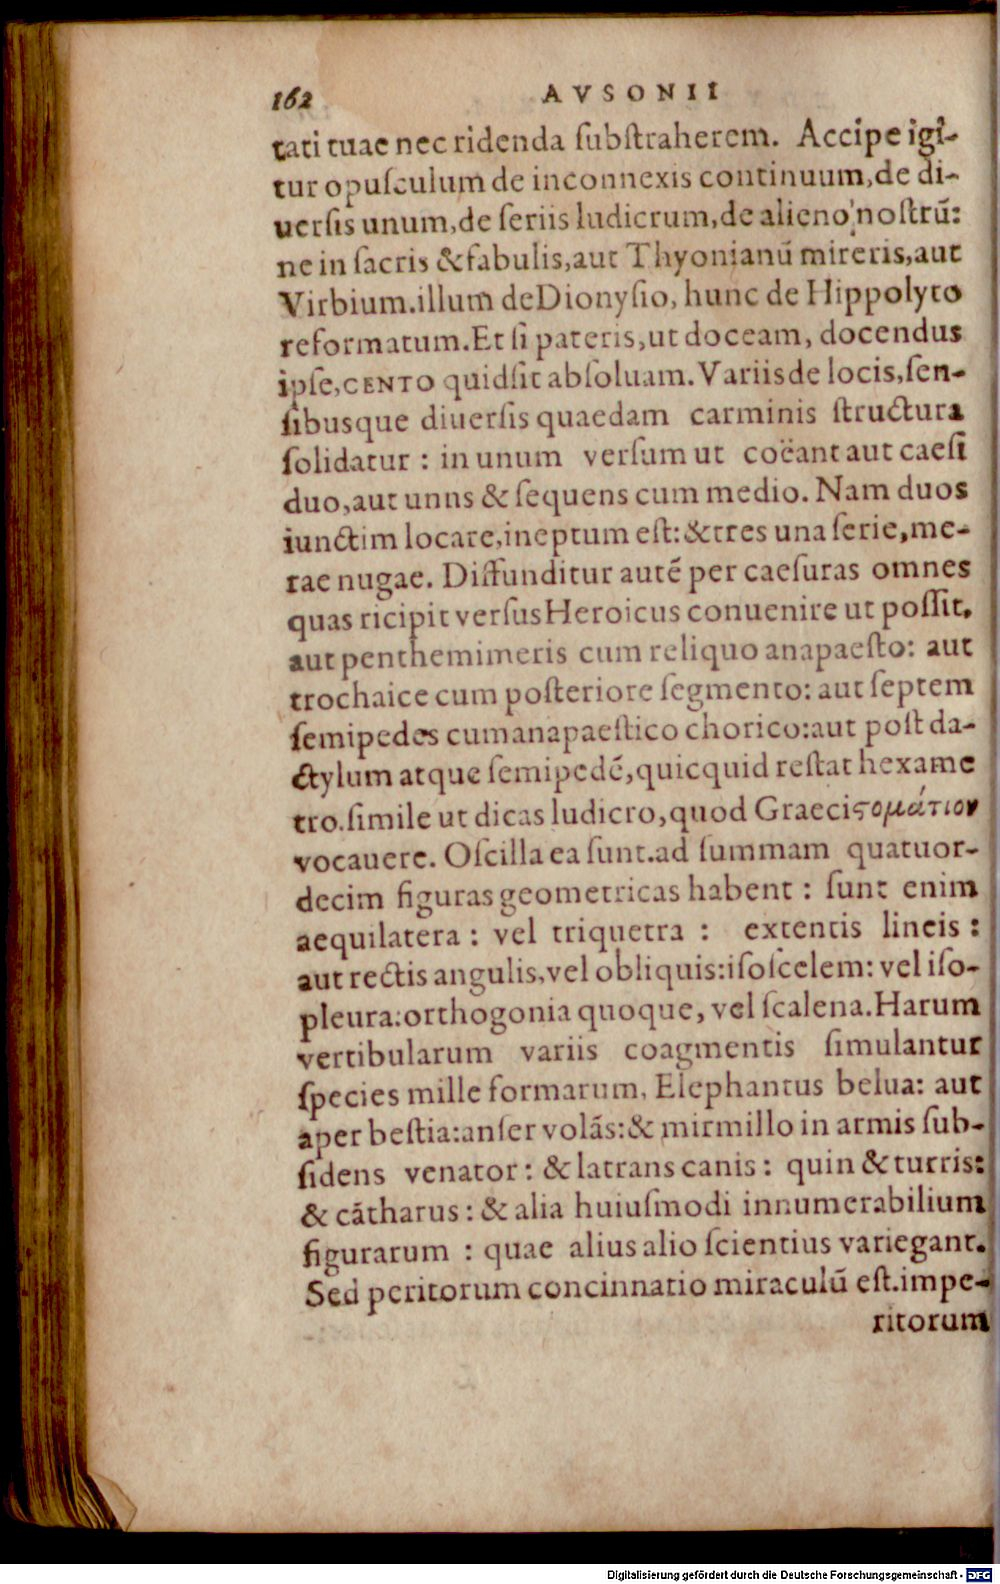 162 AVSONII
tati tuae nec ridenda ſubſtraherem. Accipe igi-
tur opuſculum de inconnexis continuum, de di-
uerſis unum, de ſeriis ludicrum, de alieno noſtrū:
ne in ſacris & fabulis, aut Thyonianū mireris, aut
Virbium. illum de Dionyſio, hunc de Hippolyto
reformatum. Et ſi pateris, ut doceam, docendus
ipſe, CENTO quid ſit abſoluam. Variis de locis, ſen-
ſibusque diuerſis quaedam carminis ſtructura
ſolidatur : in unum verſum ut coëant aut caeſi
duo, aut unns & ſequens cum medio. Nam duos
iunctim locare, ineptum eſt: & tres una ſerie, me-
rae nugae. Diffunditur autē per caeſuras omnes
quas ricipit verſus Heroicus conuenire ut poſſit,
aut penthemimeris cum reliquo anapaeſto: aut
trochaice cum poſteriore ſegmento: aut ſeptem
ſemipedes cum anapaeſtico chorico: aut poſt da-
ctylum atque ſemipedē, quicquid reſtat hexame
tro. ſimile ut dicas ludicro, quod Graeci ϛομάτιον
vocauere. Oſcilla ea ſunt. ad ſummam quatuor-
decim figuras geometricas habent : ſunt enim
aequilatera : vel triquetra : extentis lineis :
aut rectis angulis, vel obliquis: iſoſcelem: vel iſo-
pleura: orthogonia quoque, vel ſcalena. Harum
vertibularum variis coagmentis ſimulantur
ſpecies mille formarum, Elephantus belua: aut
aper beſtia: anſer volās: & mirmillo in armis ſub-
ſidens venator : & latrans canis : quin & turris:
& cātharus : & alia huiuſmodi innumerabilium
figurarum : quae alius alio ſcientius variegant.
Sed peritorum concinnatio miraculū eſt. impe-
ritorum
Digitalisierung gefördert durch die Deutsche Forschungsgemeinschaft - DFG